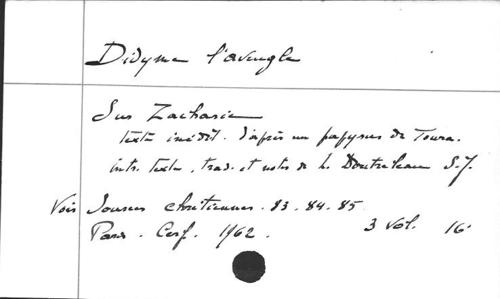 Didyme l'aveugle
Sur Zacharie
texte inédit. d'après un papyrus de Toura.
intr. texte, trad. et notes de L. Doutreleau S.J.
Voir Sources chrétiennes. 83. 84. 85
Paris. Cerf. 1962. 3 vol. 16°